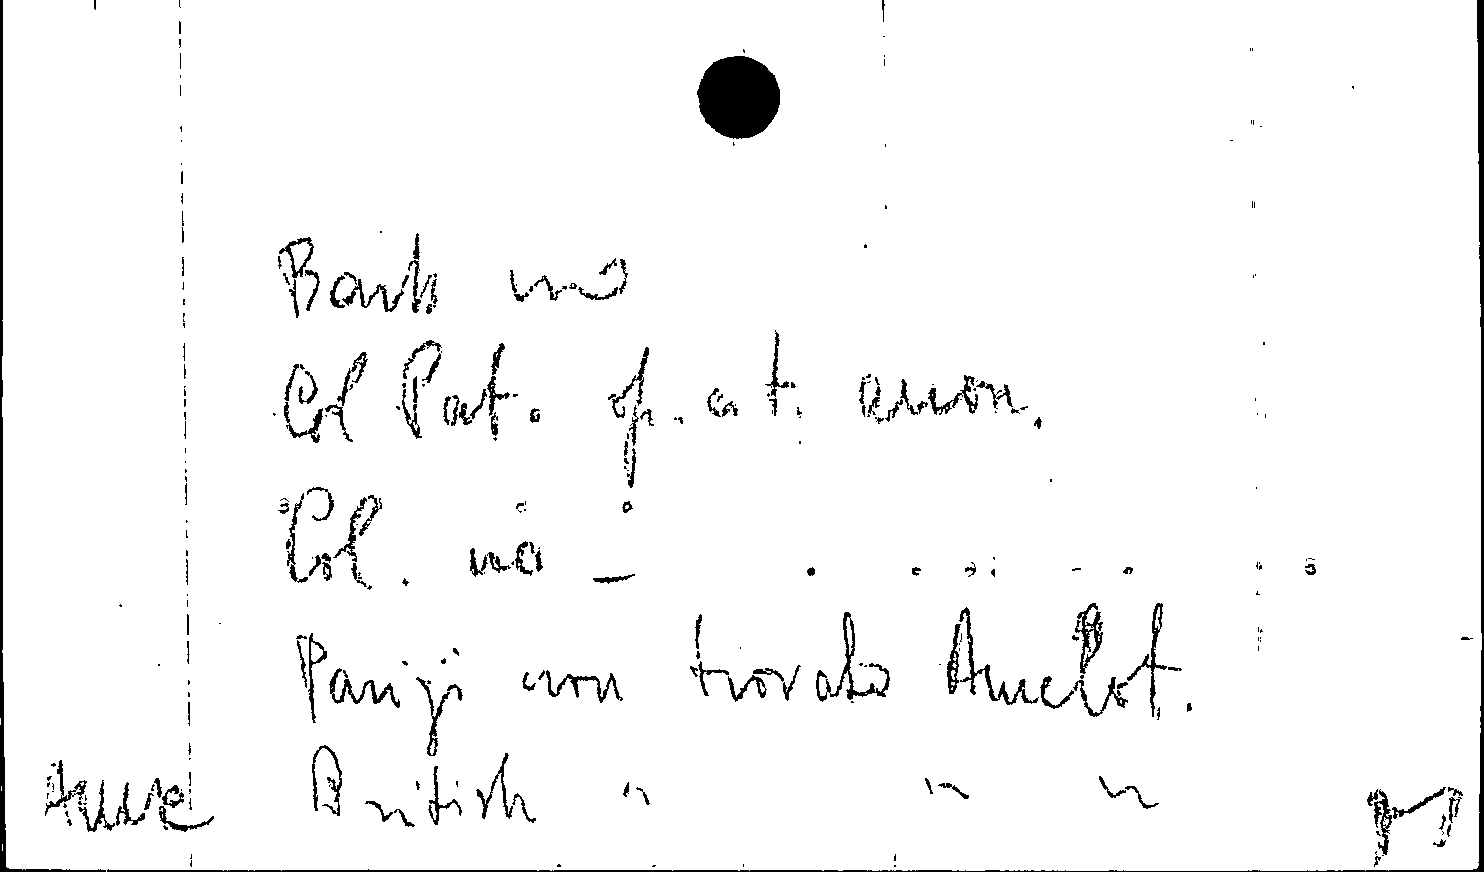 Barb no
Col Pat. op. at. anon.
Col. no —
Parigi non trovato Amelot.
Ame British " " "